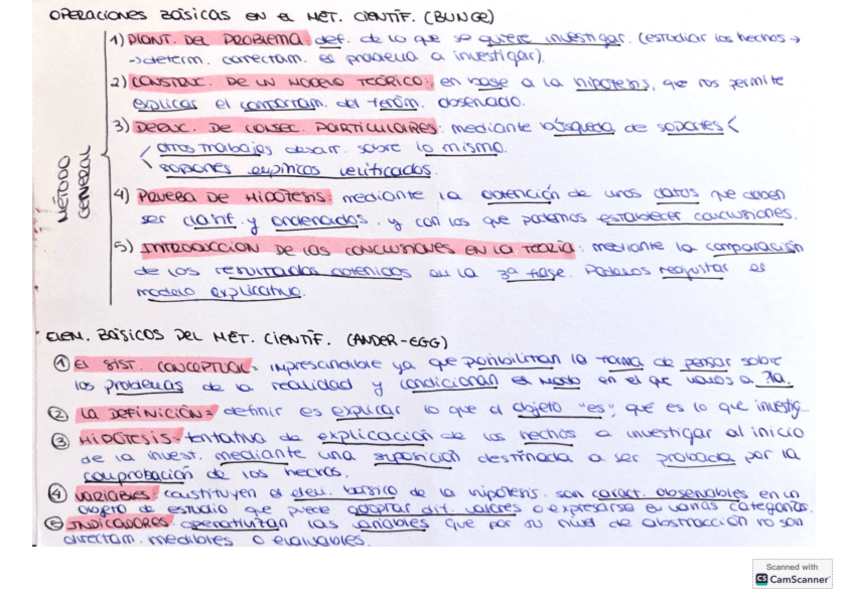 OPERACIONES BÁSICAS EN EL MÉT. CIENTÍF. (BUNGE)
1) PLANT. DEL PROBLEMA: def. de lo que se quiere investigar. (estudiar los hechos →
→ determ. correctam. el problema a investigar).
2) CONSTRUC. DE UN MODELO TEÓRICO: en base a la hipótesis, que nos permite
explicar el comportam. del fenóm. observado.
3) DEDUC. DE CONSEC. PARTICULARES: mediante búsqueda de soportes <
< otros trabajos desarr. sobre lo mismo.
< soportes empíricos verificados.
4) PRUEBA DE HIPÓTESIS: mediante la obtención de unos datos que deben
ser clasif. y ordenados, y con los que podemos establecer conclusiones.
5) INTRODUCCIÓN DE LAS CONCLUSIONES EN LA TEORÍA: mediante la comparación
de los resultados obtenidos en la 3ª fase. Podemos reajustar el
modelo explicativo.
MÉTODO
GENERAL
ELEM. BÁSICOS DEL MÉT. CIENTÍF. (ANDER-EGG)
① EL SIST. CONCEPTUAL: imprescindible ya que posibilitan la forma de pensar sobre
los problemas de la realidad y condicionan el modo en el que vamos a
② LA DEFINICIÓN: definir es explicar lo que el objeto "es", qué es lo que investig...
③ HIPÓTESIS: tentativa de explicación de los hechos a investigar al inicio
de la invest. mediante una suposición destinada a ser probada por la
comprobación de los hechos.
④ VARIABLES: constituyen el elem. básico de la hipótesis. son caract. observables en un
objeto de estudio que puede adoptar dif. valores o expresarse en varias categorías.
⑤ INDICADORES: operativizan las variables que por su nivel de abstracción no son
directam. medibles o evaluables.
Scanned with
CS CamScanner